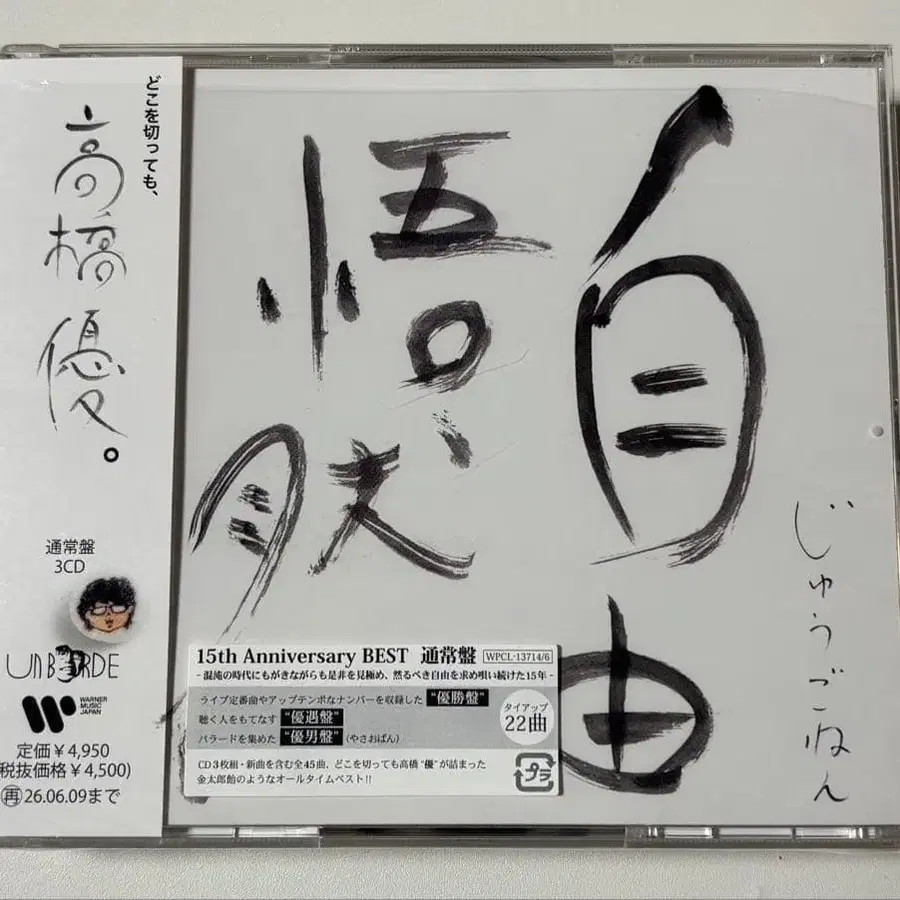 どこを切っても、
高橋優。
通常盤
3CD
unBORDE
WARNER
MUSIC
JAPAN
定価￥4,950
税抜価格￥4,500)
再26.06.09まで
自由
悟然
じゅうごねん
15th Anniversary BEST 通常盤 WPCL-13714/6
- 混沌の時代にもがきながらも是非を見極め、然るべき自由を求め唄い続けた15年 -
ライブ定番曲やアップテンポなナンバーを収録した "優勝盤"
聴く人をもてなす "優遇盤"
バラードを集めた "優男盤" (やさおばん)
タイアップ
22曲
CD3枚組・新曲を含む全45曲、どこを切っても高橋"優"が詰まった
金太郎飴のようなオールタイムベスト!!
プラ